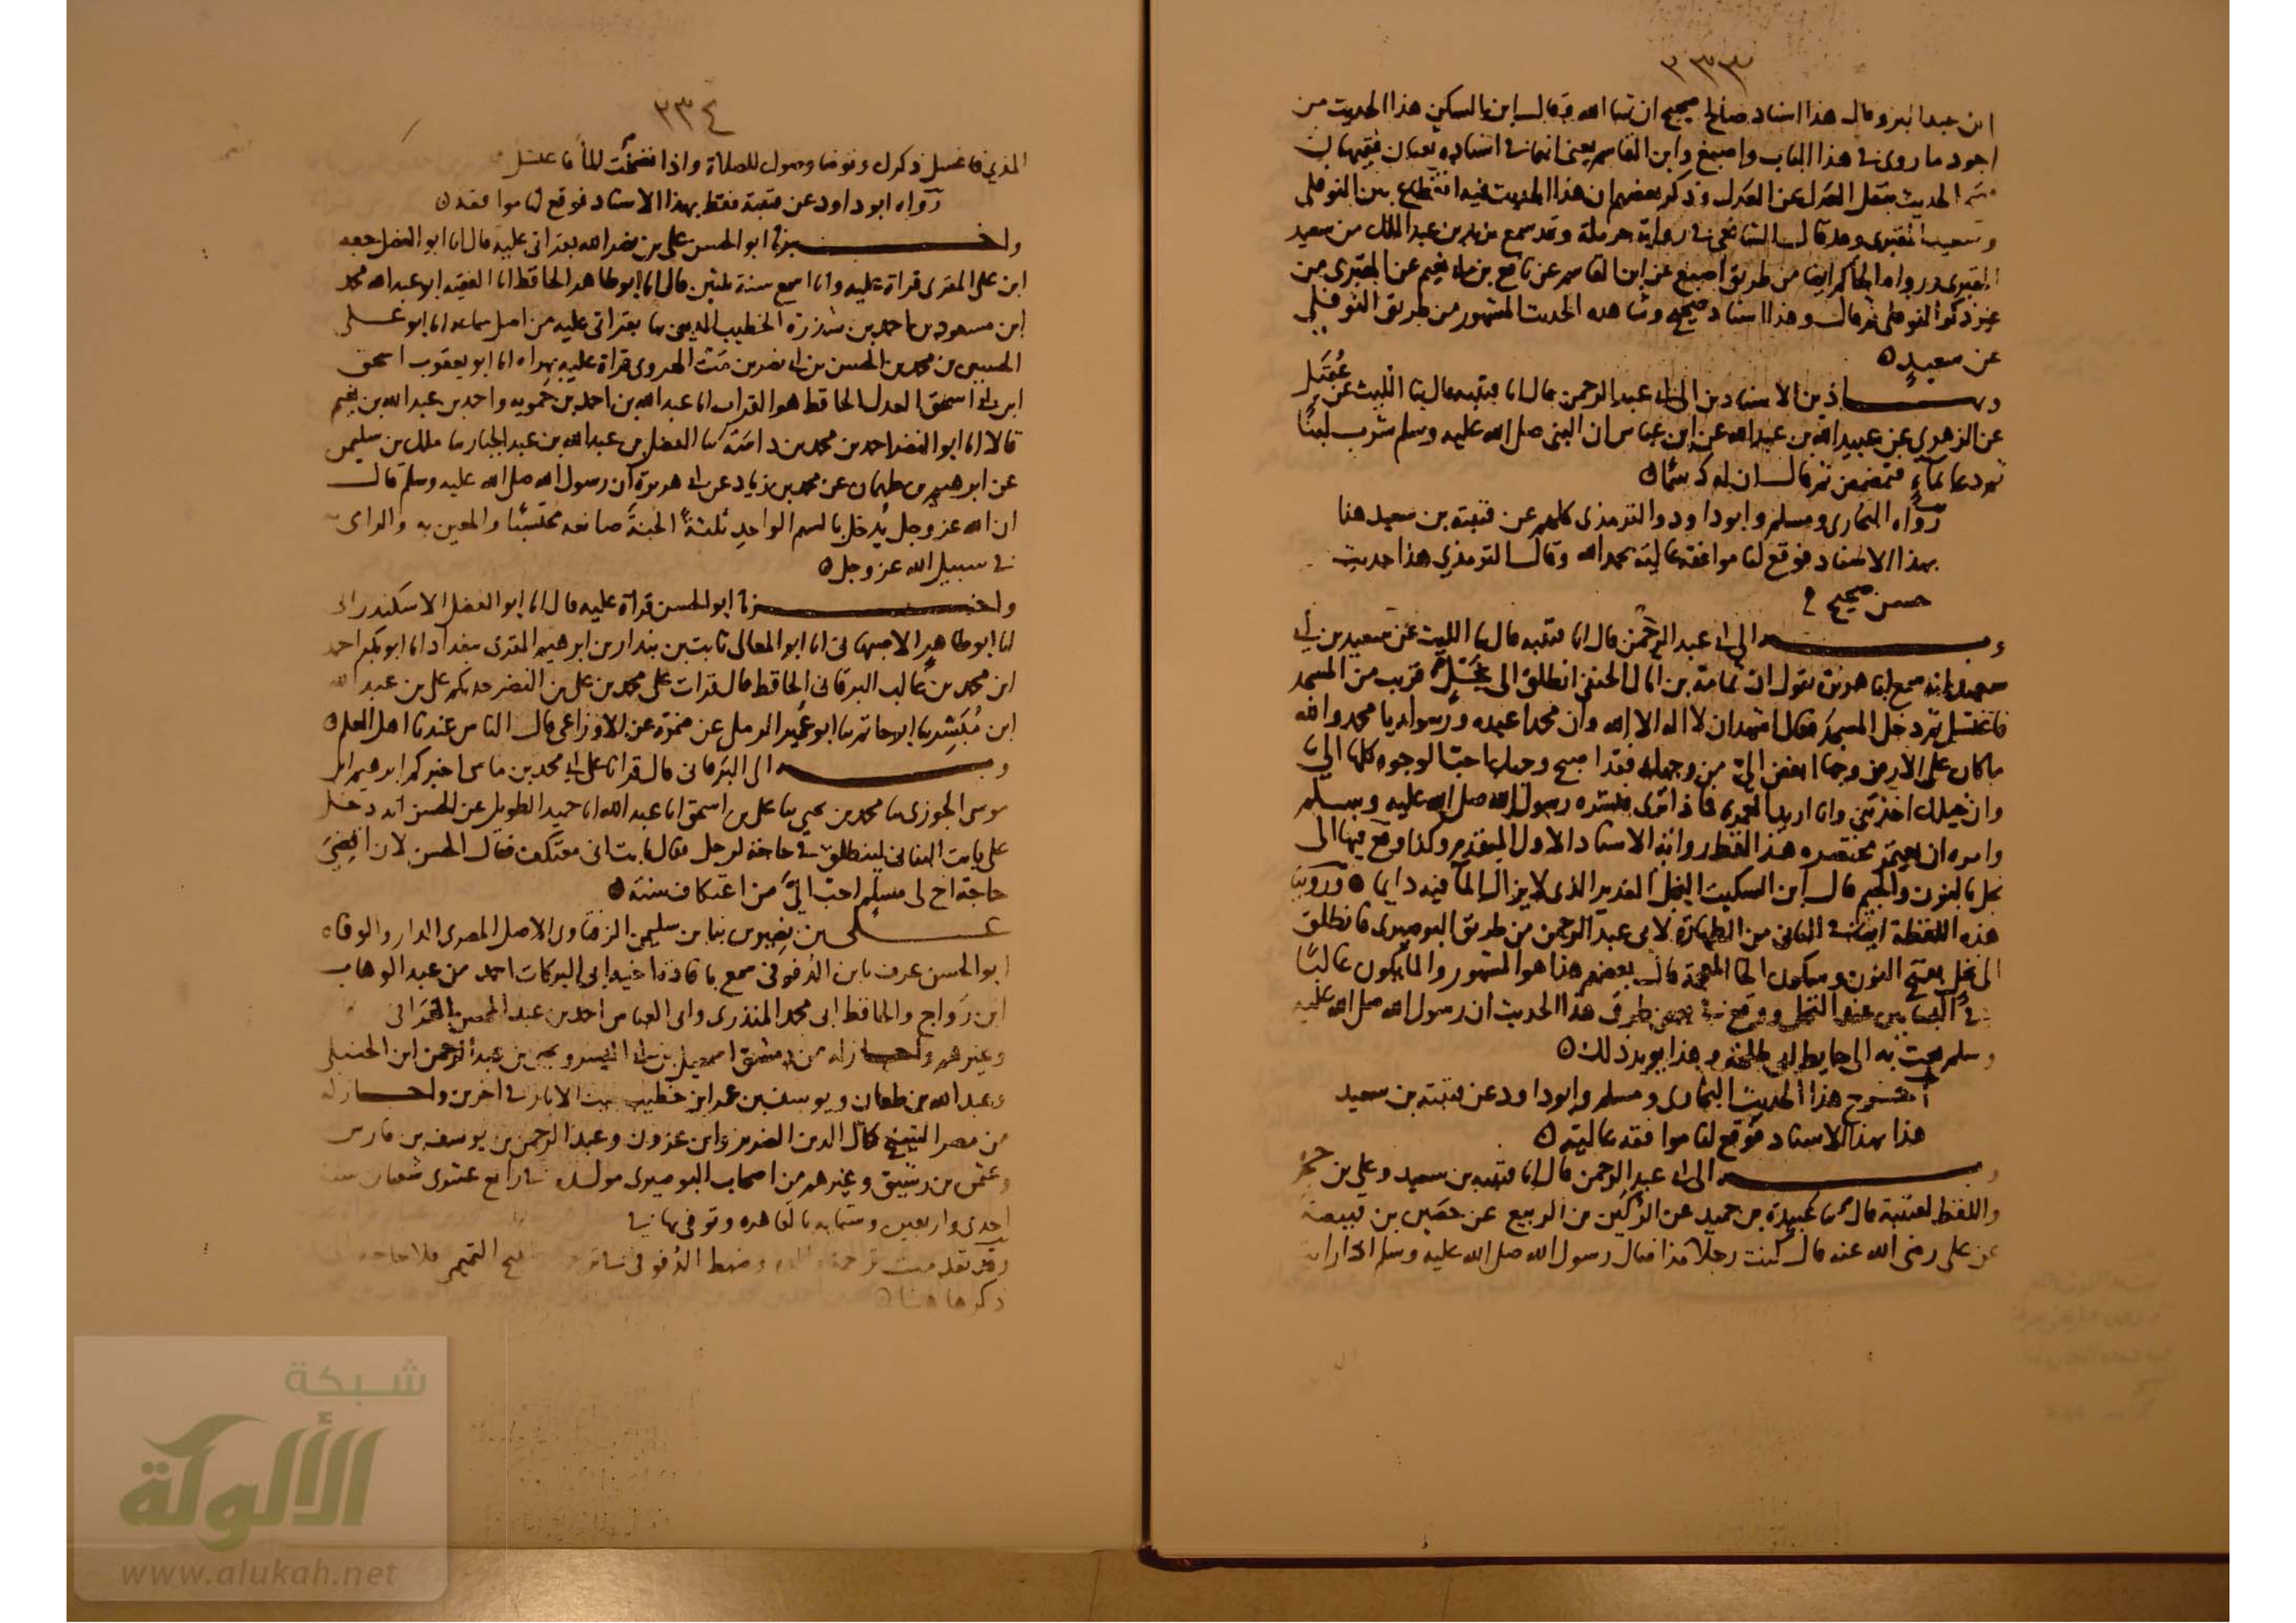 ٣٣٣
ابن عبد البر وقال هذا اسناد صالح صحيح ان شا الله وقال ابن السكن هذا الحديث من
اجود ما روى في هذا الباب واصبغ وابن القاسم يعنى انما في اسناده يعنيان فقيهان
الحديث بنقل العدل عن العدل وذكر بعضهم ان هذا الحديث فيه انقطاع بين النوفلى
وسعيد المقبرى وقد قال الشافعى في رواية حرملة وقد سمع يزيد بن عبد الملك من سعيد
المقبرى ورواه الحاكم ايضا من طريق اصبغ عن ابن القاسم عن نافع بن ابى نعيم عن المقبرى من
غير ذكر النوفلى ثم قال وهذا اسناد صحيح وشاهده الحديث المشهور من طريق النوفلى
عن سعيد
وبهاذين الاسنادين الى ابى عبد الرحمن قال انا قتيبة قال ثنا الليث عن عُقَيل
عن الزهرى عن عبيد الله بن عبد الله عن ابن عباس ان النبى صلى الله عليه وسلم شرب لبنًا
ثم دعا بماءٍ فتمضمض ثم قال ان له دسمًا
رواه البخارى ومسلم وابو داود والترمذى كلهم عن قتيبة بن سعيد هنا
بهذا الاسناد فوقع لنا موافقة عالية بحمد الله وقال الترمذي هذا حديث
حسن صحيح
وبه الى ابى عبد الرحمن قال انا قتيبة قال ثنا الليث عن سعيد بن ابى
سعيد انه سمع ابا هريرة يقول ان ثمامة بن اثال الحنفى انطلق الى نجلٍ قريب من المسجد
فاغتسل ثم دخل المسجد فقال اشهد ان لا اله الا الله وان محمدا عبده ورسوله يا محمد والله
ما كان على الارض وجها ابغض الىّ من وجهك فقد اصبح وجهك احبّ الوجوه كلها الىّ
وان خيلك اخذتنى وانا اريد العمرة فماذا ترى فبشره رسول الله صلى الله عليه وسلم
وامره ان يعتمر مختصر هذا لفظ رواية الاسناد الاول المتقدم وكذا وقع فيها الى
نجل بالنون والجيم قال ابن السكيت النجل الغدير الذى لا يزال الما فيه دايما وروينا
هذه اللفظة ايضا في الثانى من الطهارة لابى عبد الرحمن من طريق البوصيرى فانطلق
الى نخل بفتح النون وسكون الخا المعجمة قال بعضهم هذا هو المشهور والما يكون غالبًا
في البساتين عند النخل ووقع في بعض طرق هذا الحديث ان رسول الله صلى الله عليه
وسلم بعث به الى حايط ابى طلحة وهذا يويد ذلك
اخرج هذا الحديث البخارى ومسلم وابو داود عن قتيبة بن سعيد
هذا بهذا الاسناد فوقع لنا موافقة عالية
وبه الى ابى عبد الرحمن قال انا قتيبة بن سعيد وعلى بن حجر
واللفظ لقتيبة قال ثنا عَبِيدة بن حميد عن الرُكَين بن الربيع عن حصَين بن قبيصة
عن على رضى الله عنه قال كنت رجلًا مذا فقال رسول الله صلى الله عليه وسلم اذا رايت
٣٣٤
المذي فاغسل ذكرك وتوضا وضوك للصلاة واذا نضحت الما فاغتسل
رواه ابو داود عن قتيبة فقط بهذا الاسناد فوقع لنا موافقة
واخبرنا ابو الحسن على بن نصر الله بقراتى عليه قال انا ابو الفضل جعفر
ابن على المقرى قراة عليه وانا اسمع سنة ثلثين قال انا ابو طاهر الحافظ انا الفقيه ابو عبد الله محمد
ابن مسعود بن احمد بن الخطيب المدينى بها بقراتى عليه من اصل سماعه انا ابو على
الحسين بن محمد بن الحسن بن ابى نصر بن الهروى قراة عليه بهراه انا ابو يعقوب اسحق
ابن ابى اسحق العدل الحافظ هو القراب انا عبد الله بن احمد بن حمويه واحمد بن عبد الله بن نعيم
قالا انا ابو النضر احمد بن محمد بن ثنا الفضل بن عبد الله بن عبد الجبار ثنا ملك بن سليمن
عن ابرهيم بن طهمان عن محمد بن زياد عن ابى هريرة ان رسول الله صلى الله عليه وسلم قال
ان الله عز وجل يُدخل بالسهم الواحدِ ثلثةً الجنةَ صانعه محتسبًا والمعين به والرامى به
في سبيل الله عز وجل
واخبرنا ابو الحسن قراة عليه قال انا ابو الفضل الاسكندرانى
انا ابو طاهر الاصبهانى انا ابو المعالى ثابت بن بندار بن ابرهيم المقرى ببغداد انا ابو بكر احمد
ابن محمد بن غالب البرقانى الحافظ قال قرات على محمد بن على بن النضر حدثكم على بن عبد الله
ابن مُبَشّر ثنا ابو حاتم ثنا ابو عُمير الرملى عن ضمرة عن الاوزاعى قال الناس عندنا اهل العلم
وبه الى البَرقانى قال قرانا على ابى محمد بن ماسى اخبركم ابرهيم بن
موسى الجوزى ثنا محمد بن يحيى ثنا على بن اسحق انا عبد الله انا حميد الطويل عن الحسن انه دخل
على ثابت البنانى لينطلق في حاجة لرجل فقال ثابت انى معتكف فقال الحسن لان اقضِىَ
حاجة اخ لى مسلمٍ احبّ الىّ من اعتكاف سنة
على بن نِصِير بن نبا بن سليمن الزفتاوى الاصل المصرى الدار والوفاه
ابو الحسن عرف بابن الدُفوفى سمع بافادة اخيه ابى البركات احمد من عبد الوهاب
ابن رَواج والحافظ ابى محمد المنذرى وابى العباس احمد بن عبد المحسن الغَرّافى
وغيرهم واجاز له من دمشق اسمعيل بن ابى اليسر ويحيى بن عبد الرحمن ابن الحنبلى
وعبد الله بن طعان ويوسف بن عمر ابن خطيب بيت الابار في اخرين واجاز له
من مصر الشيخ كمال الدين الضرير وابن عزون وعبد الرحمن بن يوسف بن فارس
وعثمن بن رشيق وغيرهم من اصحاب البوصيرى مولده في رابع عشرى شعبان سنة
احدى واربعين وستمايه بالقاهره وتوفى بها في
وقد تقدمت ترجمة وضبط الدُفوفى فلا حاجة
ذكرها هنا
شبكة
الألوكة
www.alukah.net